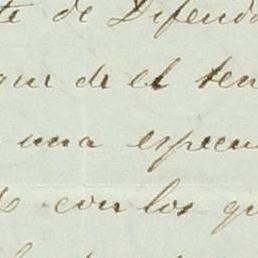 te de Difendo
que de el ten
una especu
con los qu